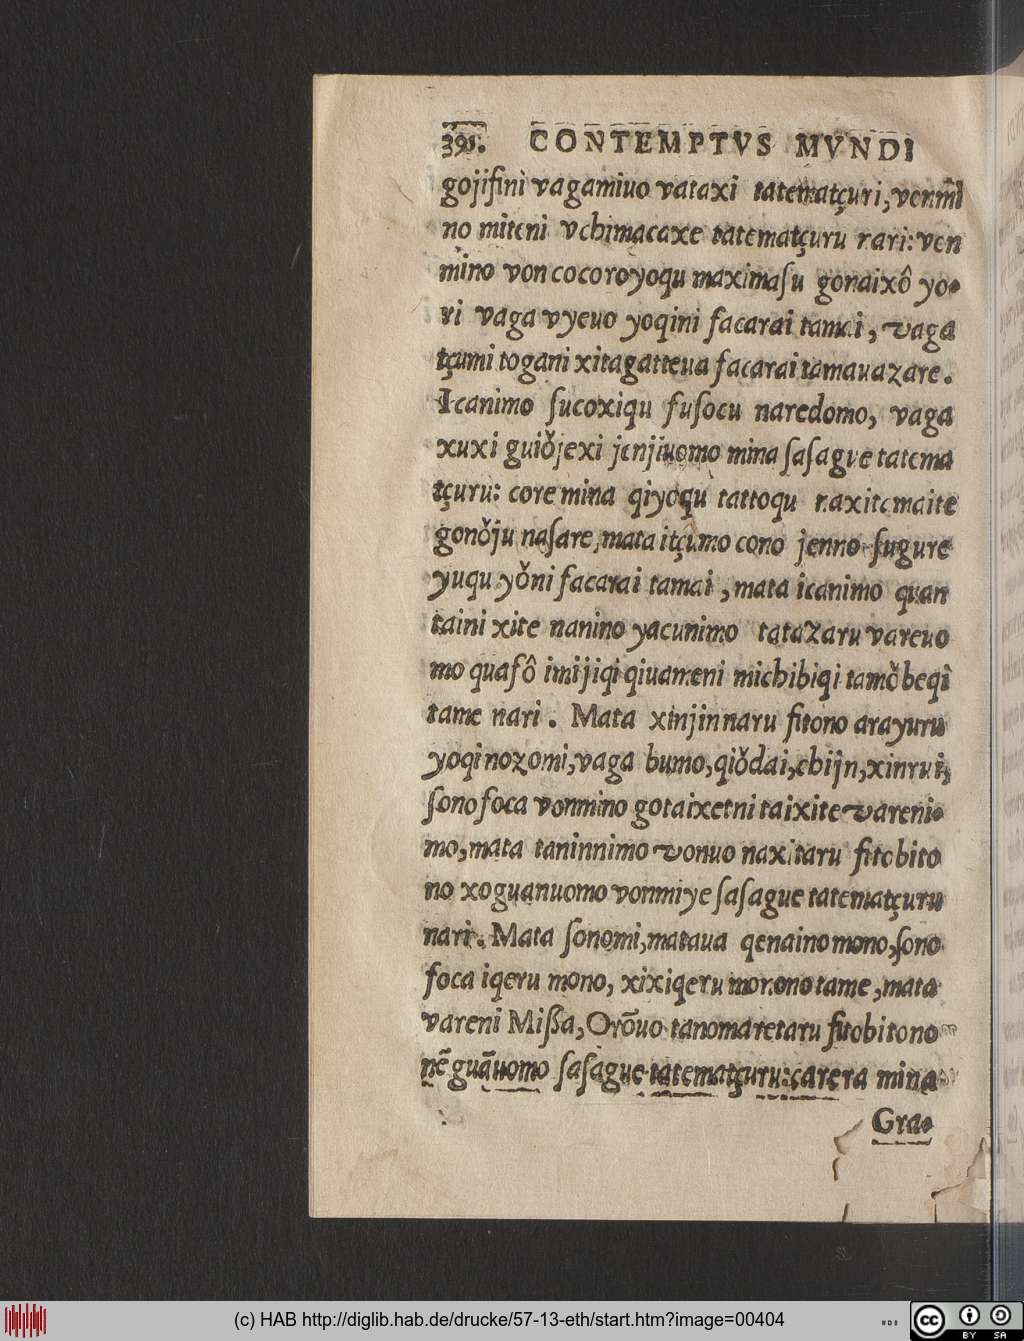 391. CONTEMPTVS MVNDI
gojiſini vagamiuo vataxi tatematçuri, vonmi
no miteni vchimacaxe tatematçuru rari: von
mino von cocoroyoqu maximaſu gonaixô yo-
ri vaga vyeuo yoqini facarai tamai, vaga
tçumi togani xitagatteua facarai tamauazare.
Icanimo ſucoxiqu fuſocu naredomo, vaga
xuxi guiǒjexi jenjiuomo mina ſaſague tatema
tçuru: core mina qiyoqu tattoqu naxitamaite
gonǒju naſare, mata itçumo cono jenno ſugure
yuqu yǒni facarai tamai, mata icanimo quan
taini xite nanino yacunimo tatazaru vareuo
mo quafô imijiqi qiuameni michibiqi tamǒbeqi
tame nari. Mata xinjinnaru fitono arayuru
yoqi nozomi, vaga bumo, qiǒdai, chijn, xinrui,
ſono foca vonmino gotaixetni taixite vareni-
mo, mata taninnimo vonuo naxitaru fitobito
no xoguanuomo vonmiye ſaſague tatematçuru
nari. Mata ſonomi, mataua qenaino mono, ſono
foca iqeru mono, xixiqeru monono tame, mata
vareni Miſſa, Orõuo tanomaretaru fitobitono
nẽguãuomo ſaſague tatematçuru: carera mina
Gra-
(c) HAB http://diglib.hab.de/drucke/57-13-eth/start.htm?image=00404
cc BY SA